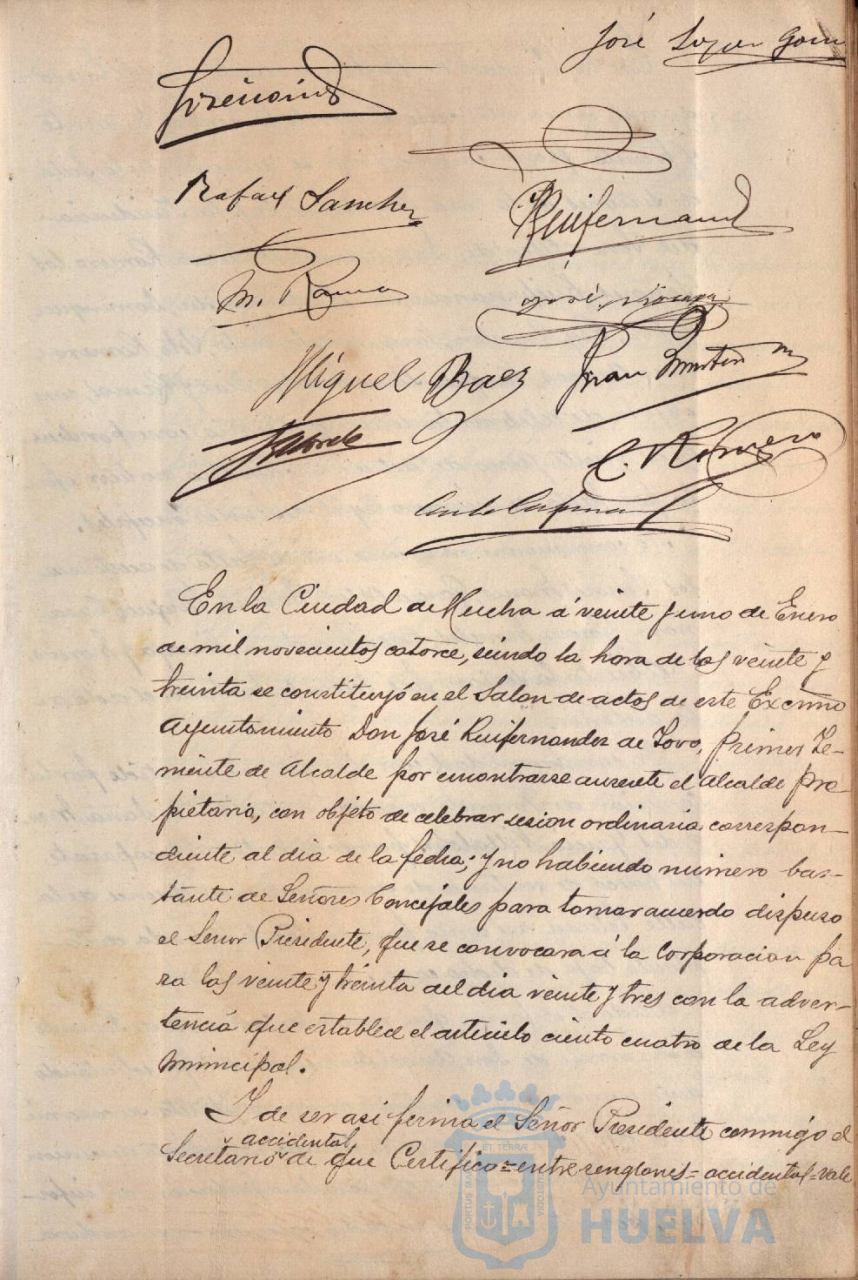 José López
Rafael Sanchez
Ruifernand
M. Ramos
José
Miguel Baez
Juan
C. Romero
En la Ciudad de Huelva á veinte y uno de Enero
de mil novecientos catorce, siendo la hora de las veinte y
treinta se constituyó en el Salon de actos de este Excmo
Ayuntamiento Don José Ruifernandez de Tovo, primer Te-
niente de Alcalde por encontrarse ausente el Alcalde pro-
pietario, con objeto de celebrar sesion ordinaria correspon-
diente al dia de la fecha; y no habiendo número bas-
tante de Señores Concejales para tomar acuerdo dispuso
el Señor Presidente, que se convocara á la Corporacion pa
ra las veinte y treinta del dia veinte y tres con la adver-
tencia que establece el articulo ciento cuatro de la Ley
Municipal.
Y de ser asi firma el Señor Presidente conmigo el
accidental
Secretario de que Certifico = entre renglones = accidental = vale
PORTUS MARIS
ET TERRAE
CUSTODIA
Ayuntamiento de
HUELVA